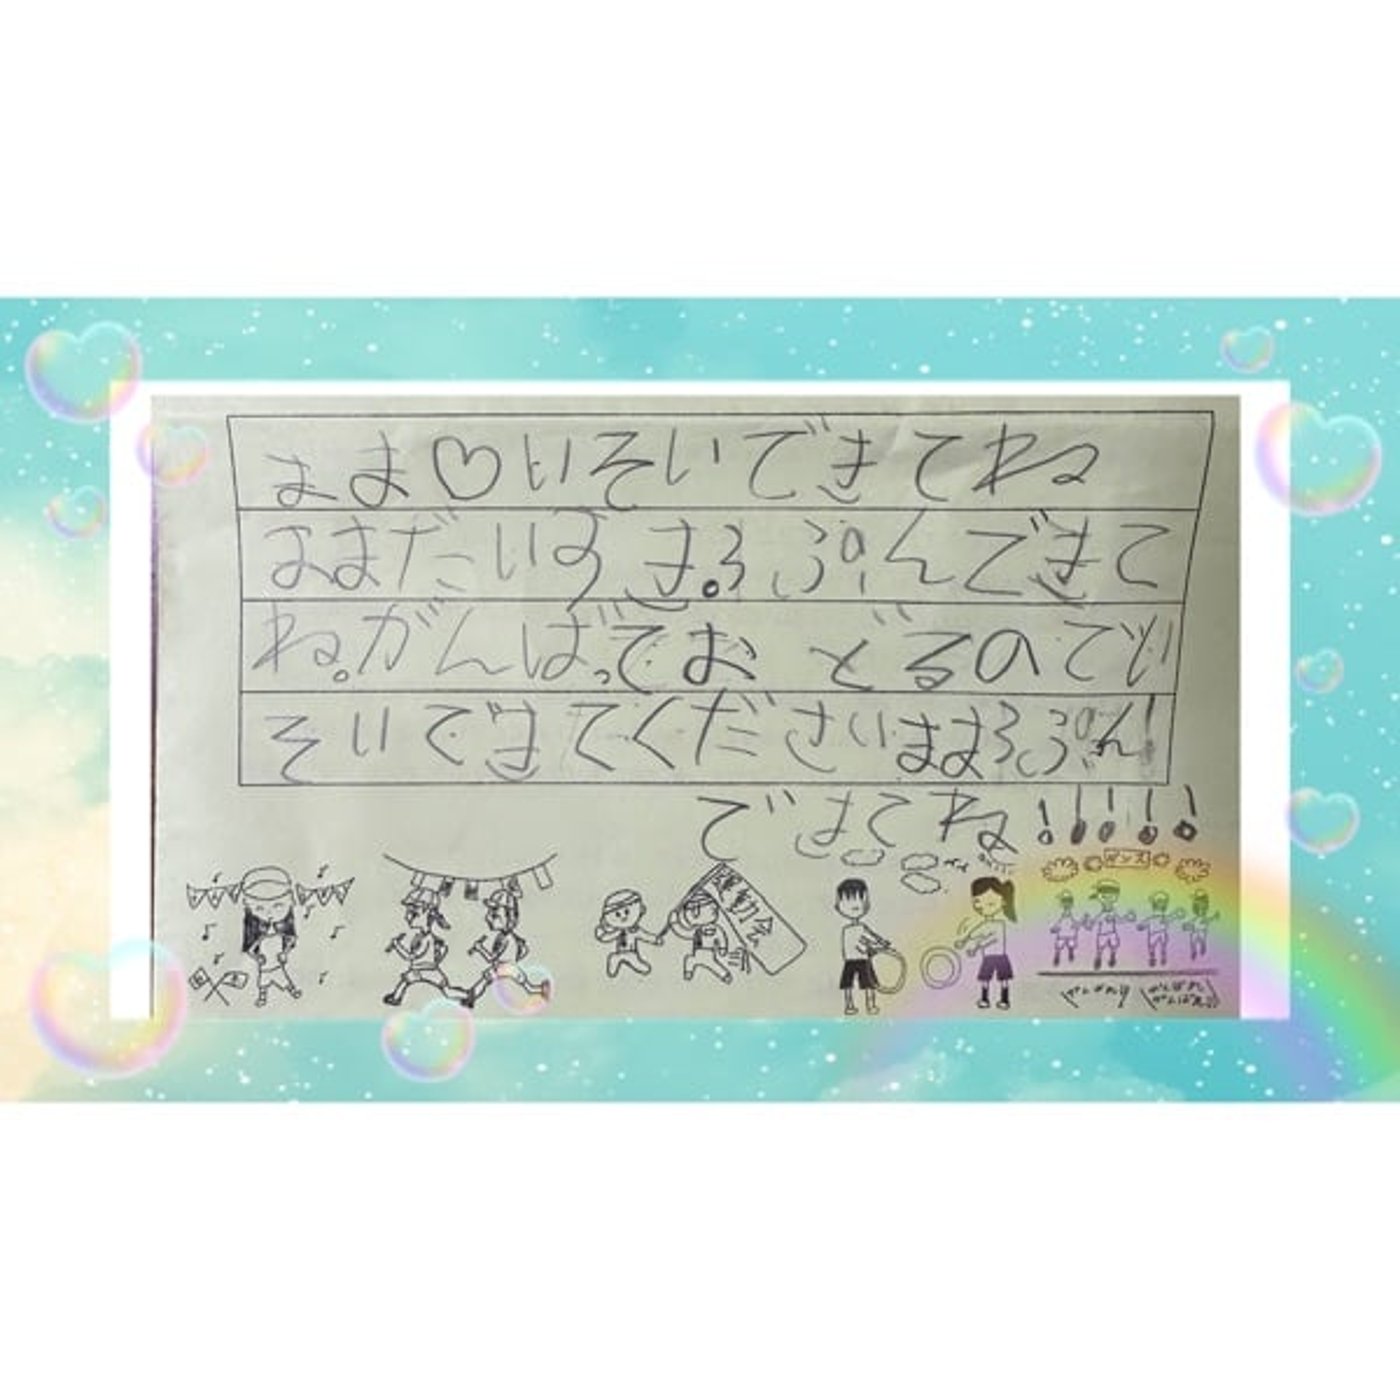 まま♡いそいできてね
ままだいすき。ろぷんできて
ね。がんばっておどるのでい
そいできてくださいままろぷん
できてね!!!!!
運動会
ダンス
がんばれ
がんばれ